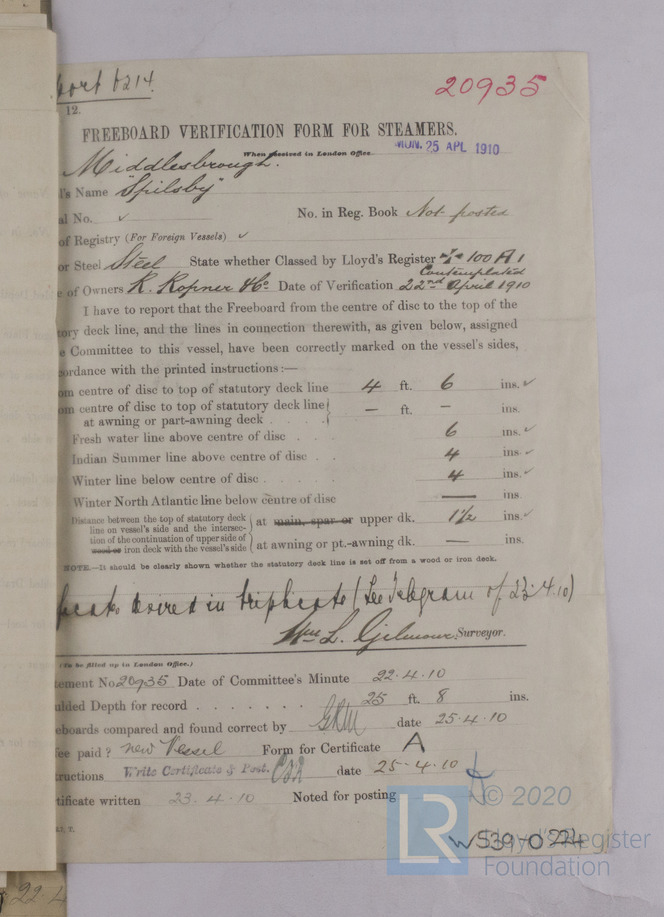 port 6214.
20935
12.
FREEBOARD VERIFICATION FORM FOR STEAMERS.
When received in London Office. MON. 25 APL 1910
Middlesbrough.
l's Name "Spilsby"
al No. ✓ No. in Reg. Book Not posted
of Registry (For Foreign Vessels) ✓
or Steel Steel State whether Classed by Lloyd's Register 100 A 1
Contemplated
e of Owners R. Ropner & Co Date of Verification 22nd April 1910
I have to report that the Freeboard from the centre of disc to the top of the
tory deck line, and the lines in connection therewith, as given below, assigned
e Committee to this vessel, have been correctly marked on the vessel's sides,
ordance with the printed instructions:—
om centre of disc to top of statutory deck line 4 ft. 6 ins. ✓
om centre of disc to top of statutory deck line
at awning or part-awning deck . . . . — ft. — ins.
Fresh water line above centre of disc . . . 6 ins. ✓
Indian Summer line above centre of disc . . 4 ins. ✓
Winter line below centre of disc . . . . 4 ins. ✓
Winter North Atlantic line below centre of disc — ins
Distance between the top of statutory deck
line on vessel's side and the intersec-
tion of the continuation of upper side of
wood or iron deck with the vessel's side
at main, spar or upper dk. 1½ ins. ✓
at awning or pt.-awning dk. — ins.
NOTE.—It should be clearly shown whether the statutory deck line is set off from a wood or iron deck.
ficate desired in triplicate (See Telegram of 23.4.10)
Wm L. Gilmour, Surveyor.
(To be filled up in London Office.)
tement No. 20935 Date of Committee's Minute 22.4.10
ulded Depth for record . . . . . . . 25 ft. 8 ins.
eboards compared and found correct by date 25.4.10
fee paid? new Vessel Form for Certificate A
tructions Write Certificate & Post. date 25.4.10
tificate written 23.4.10 Noted for posting
T.
22.4
LR © 2020
Lloyd's Register
Foundation
W539-0224